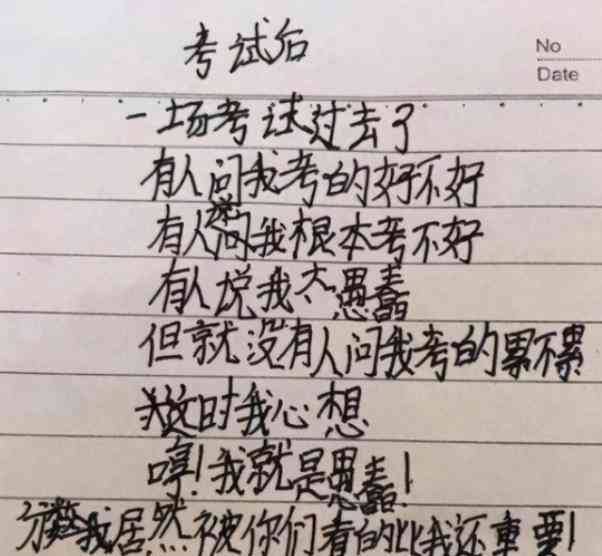 考试后
No
Date
一场考试过去了
有人问我考的好不好
有人问我根本考不好
有人说我太愚蠢
但就没有人问我考的累不累
时我心想
哼!我就是愚蠢!
分数居然被你们看的比我还重要!